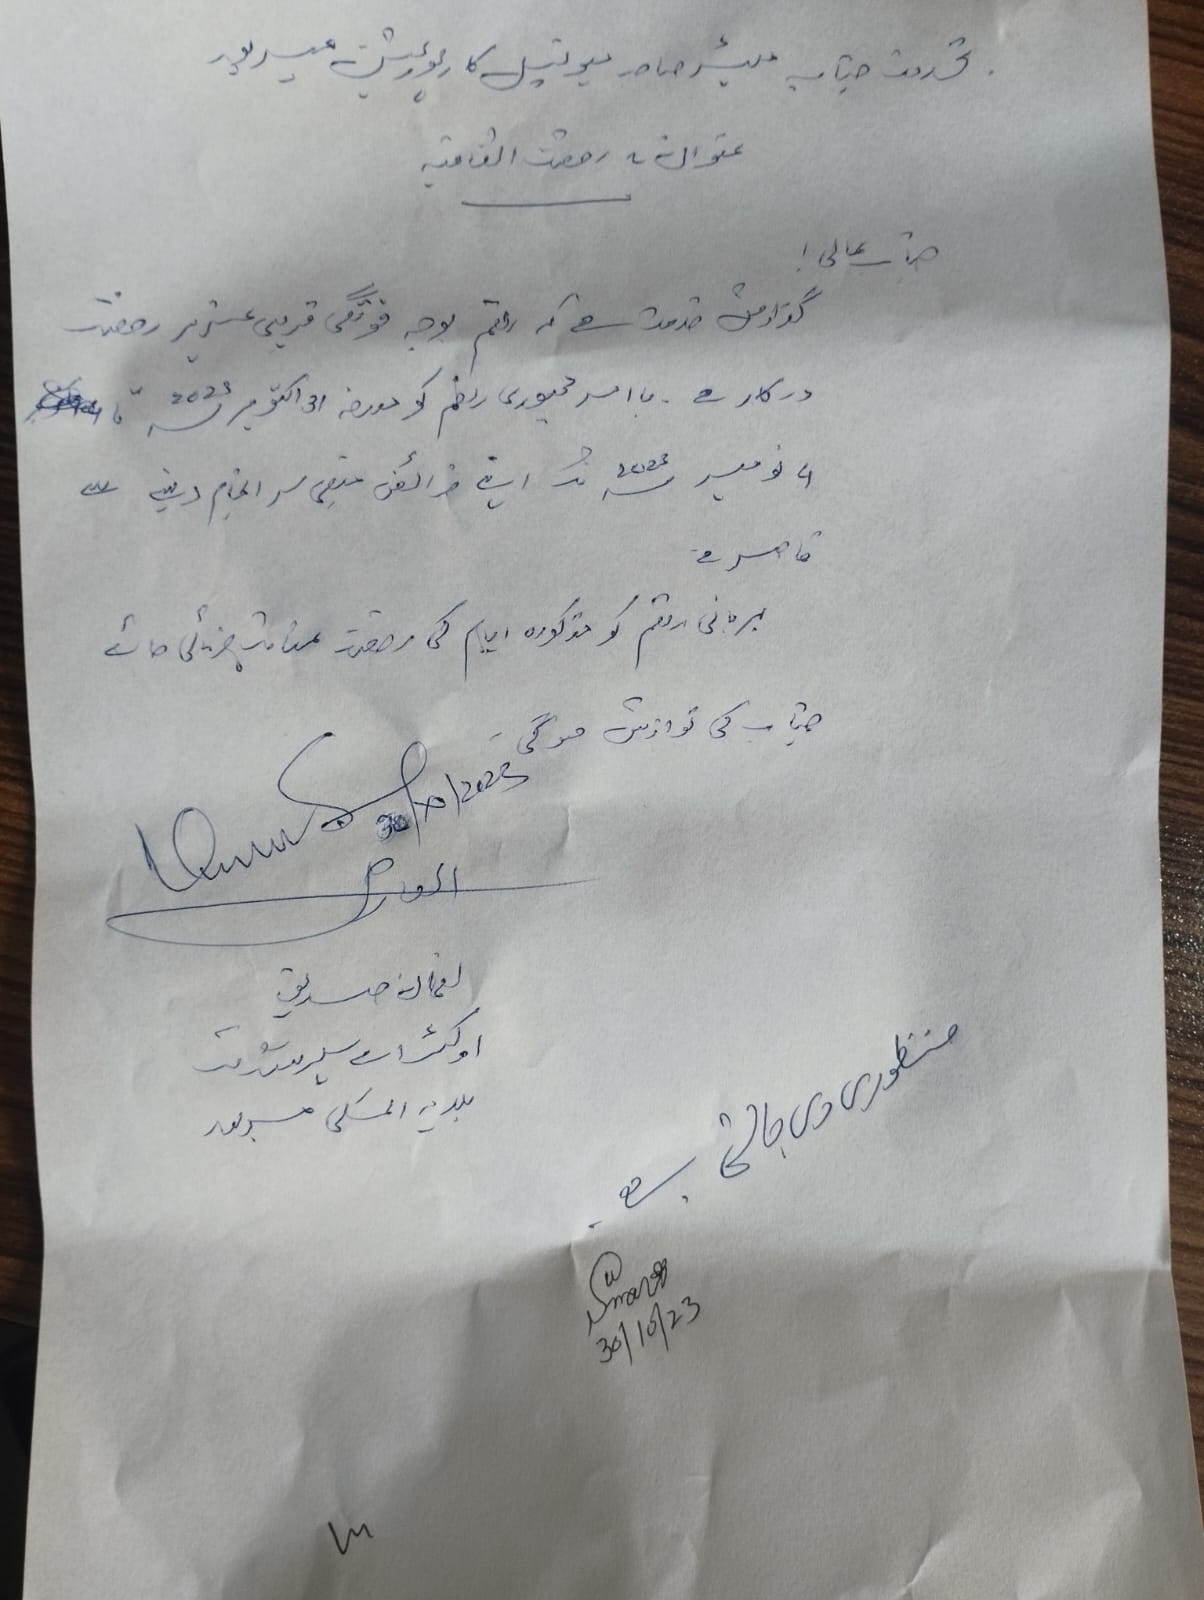 بخدمت جناب میئر صاحب میونسپل کارپوریشن میرپور
عنوان :۔ رخصت اتفاقیہ
جناب عالی !
گزارش خدمت ہے کہ راقم بوجہ فوتگی قریبی عزیز رخصت
درکار ہے ۔ بامر مجبوری راقم کو مورخہ 31 اکتوبر 2023 تا
نومبر 2023 تک اپنے فرائض منصبی سر انجام دینے سے
قاصر ہے۔
مہربانی راقم کو مذکورہ ایام کی رخصت عنایت فرمائی جائے
جناب کی نوازش ہوگی۔
30/10/2023
العارض
لقمان صدیق
اوکٹرائے سپرنٹنڈنٹ
بلدیہ اعلیٰ میرپور
منظوری دی جاتی ہے۔
30/10/23